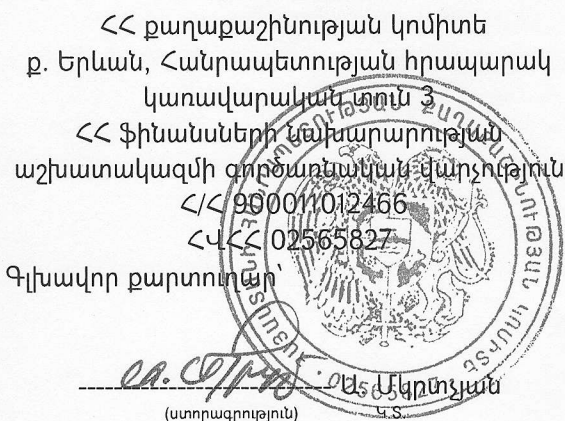 ՀՀ քաղաքաշինության կոմիտե
ք. Երևան, Հանրապետության հրապարակ
կառավարական տուն 3
ՀՀ ֆինանսների նախարարության
աշխատակազմի գործառնական վարչություն
Հ/Հ 900011012466
ՀՎՀՀ 02565827
Գլխավոր քարտուղար՝
Ա. Մկրտչյան
(ստորագրություն)
Կ.Տ.
ՔԱՂԱՔԱՇԻՆՈՒԹՅԱՆ ԿՈՄԻՏԵ